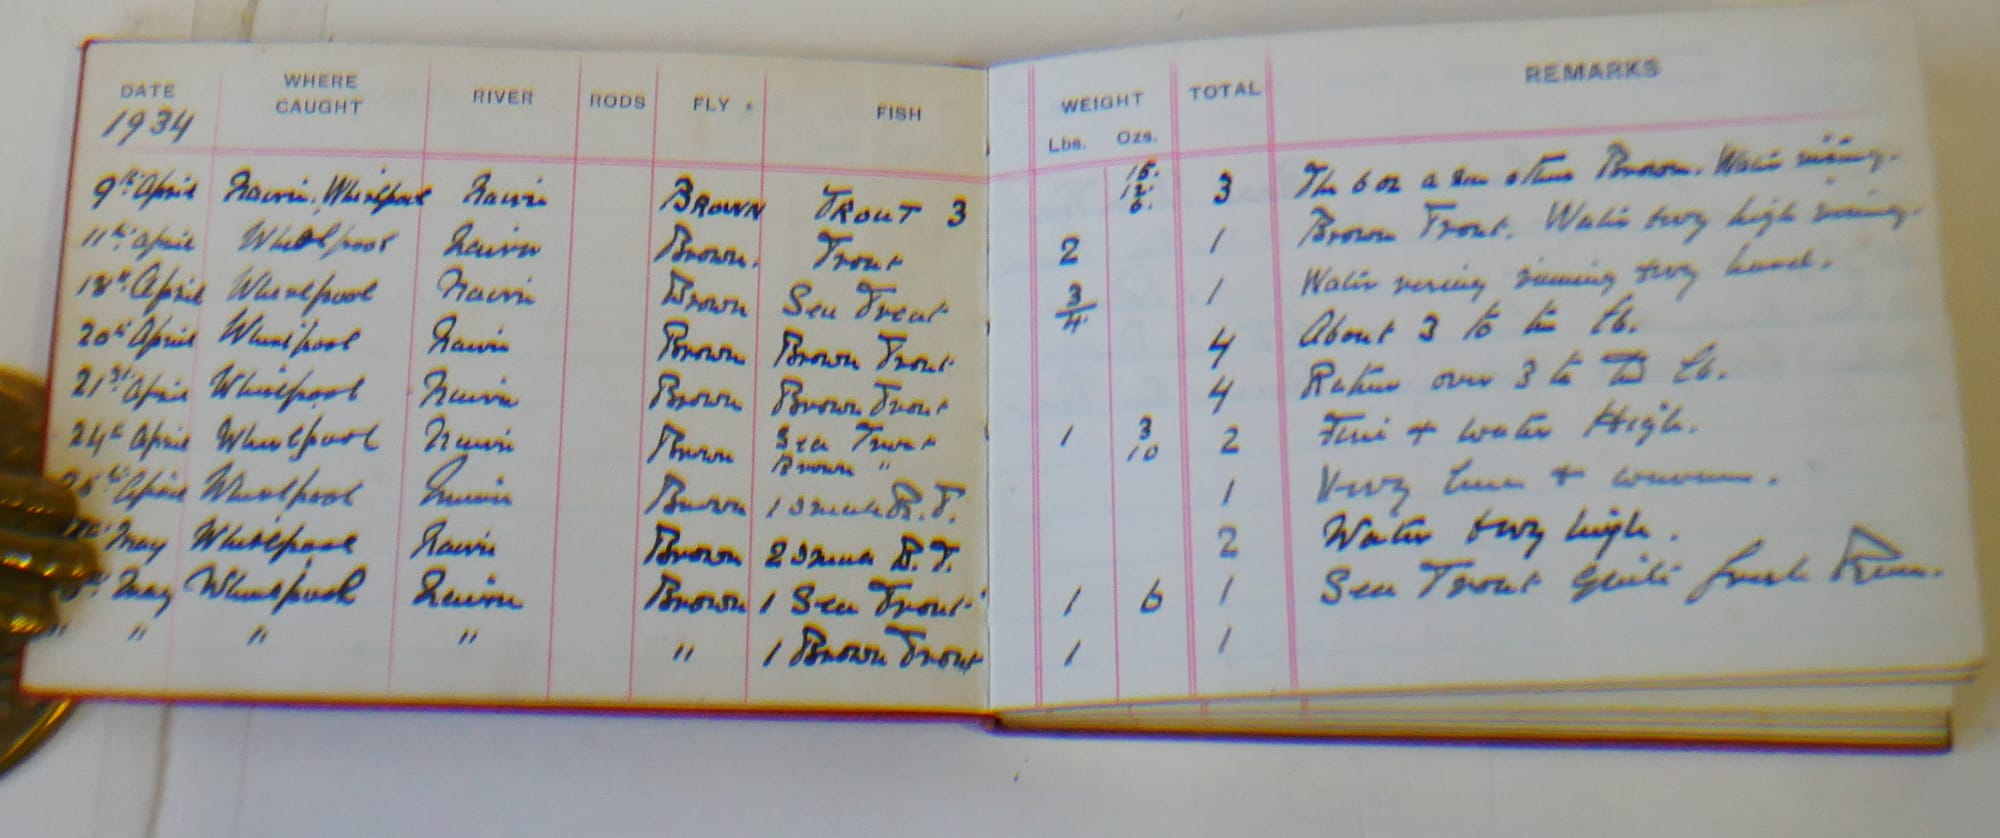 DATE WHERE CAUGHT RIVER RODS FLY FISH WEIGHT Lbs. Ozs. TOTAL REMARKS
1934
9th April Nairn. Whirlpool Nairn BROWN TROUT 3 15. 12. 6. 3 The 6 oz a Sea others Brown. Water rising.
11th April Whirlpool Nairn Brown. Trout 2 1 Brown Trout. Water very high rising.
18th April Whirlpool Nairn Brown Sea Trout 3/4. 1 Water rising running very hard.
20th April Whirlpool Nairn Brown Brown Trout 4 About 3 to the lb.
21st April Whirlpool Nairn Brown Brown Trout 4 Rather over 3 to the lb.
24th April Whirlpool Nairn Brown Sea Trout 1 3 2 Fine + water High.
Brown " 10
April Whirlpool Nairn Brown 1 Small B.T. 1 Very +
May Whirlpool Nairn Brown 2 Small B.T. 2 Water very high.
May Whirlpool Nairn Brown 1 Sea Trout 1 6 1 Sea Trout quite fresh Run.
" " " " " 1 Brown Trout 1 1